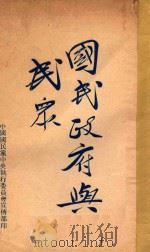 國民政府與
民衆
中國國民黨中央執行委員會宣傳部印